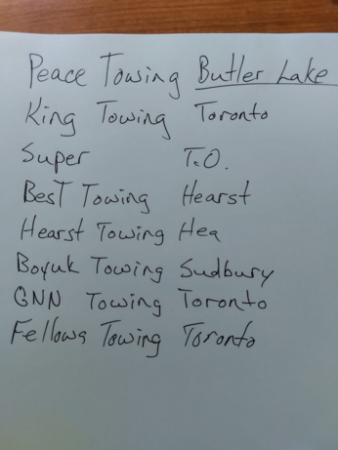 Peace Towing Butler Lake
King Towing Toronto
Super T.O.
Best Towing Hearst
Hearst Towing Hea
Boyuk Towing Sudbury
GNN Towing Toronto
Fellows Towing Toronto